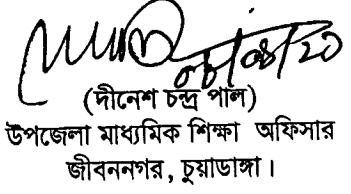 (দীনেশ চন্দ্র পাল)
উপজেলা মাধ্যমিক শিক্ষা অফিসার
জীবননগর, চুয়াডাঙ্গা।